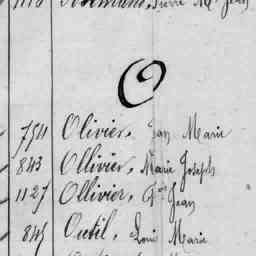 Pierre M. Jean
O
754 Olivier, Jan Marie
843 Ollivier, Marie Joseph
1127 Ollivier, Jean
845 Outil, Louis Marie